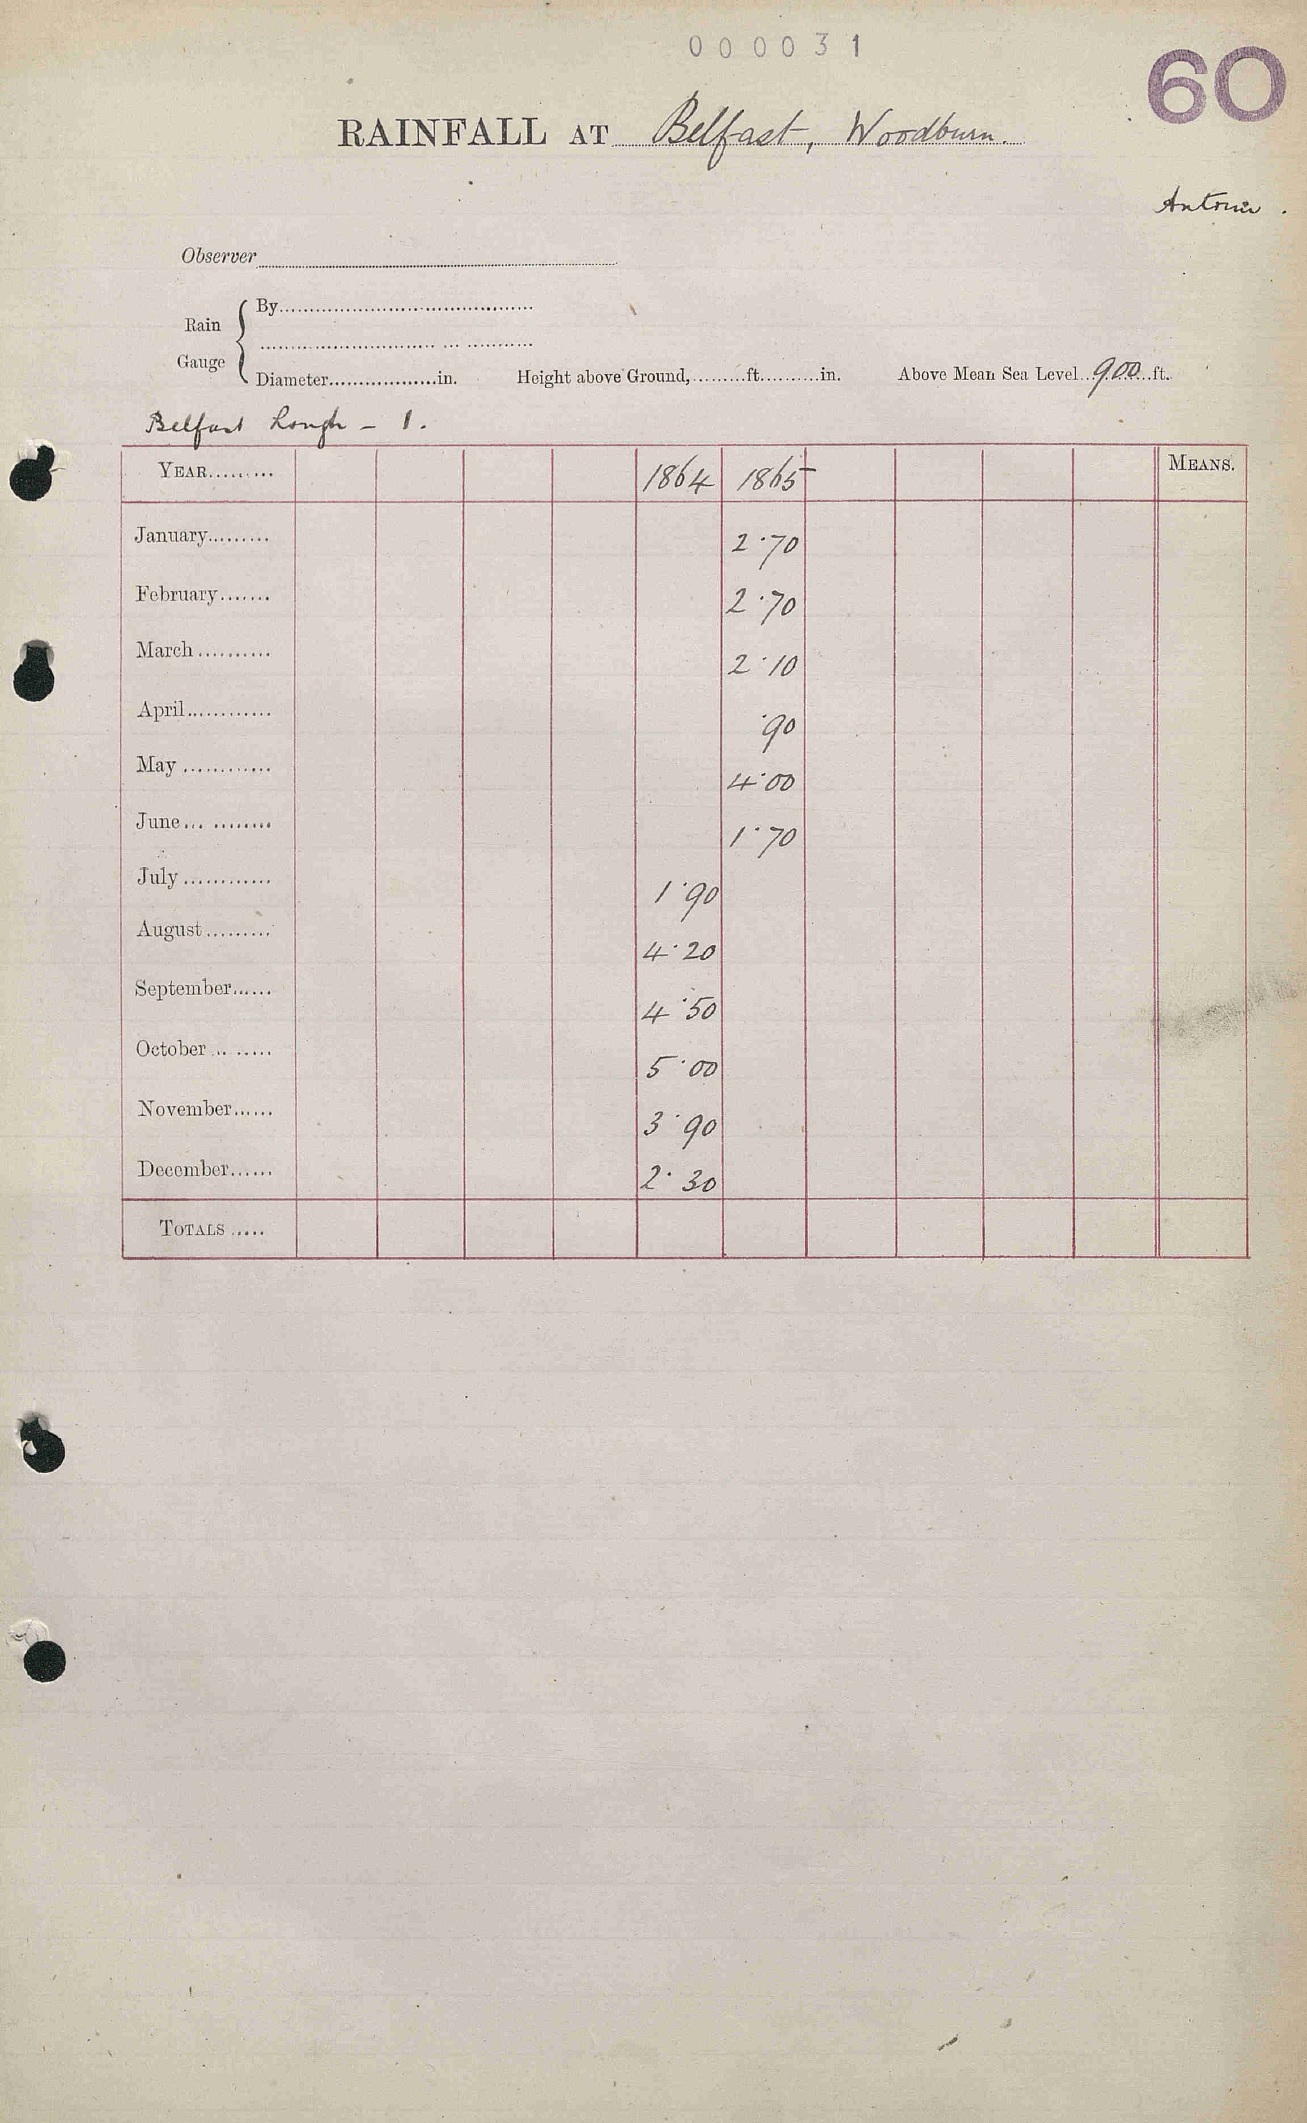 000031
60
RAINFALL AT Belfast, Woodburn.
Antrim.
Observer
Rain Gauge
By
Diameter..................in. Height above Ground,.........ft..........in. Above Mean Sea Level...900...ft.
Belfast Lough - 1.
YEAR......... 1864 1865 MEANS.
January......... 2·70
February....... 2·70
March.......... 2·10
April............ ·90
May............ 4·00
June... ........ 1·70
July............ 1·90
August......... 4·20
September...... 4·50
October... ...... 5·00
November...... 3·90
December...... 2·30
TOTALS .....